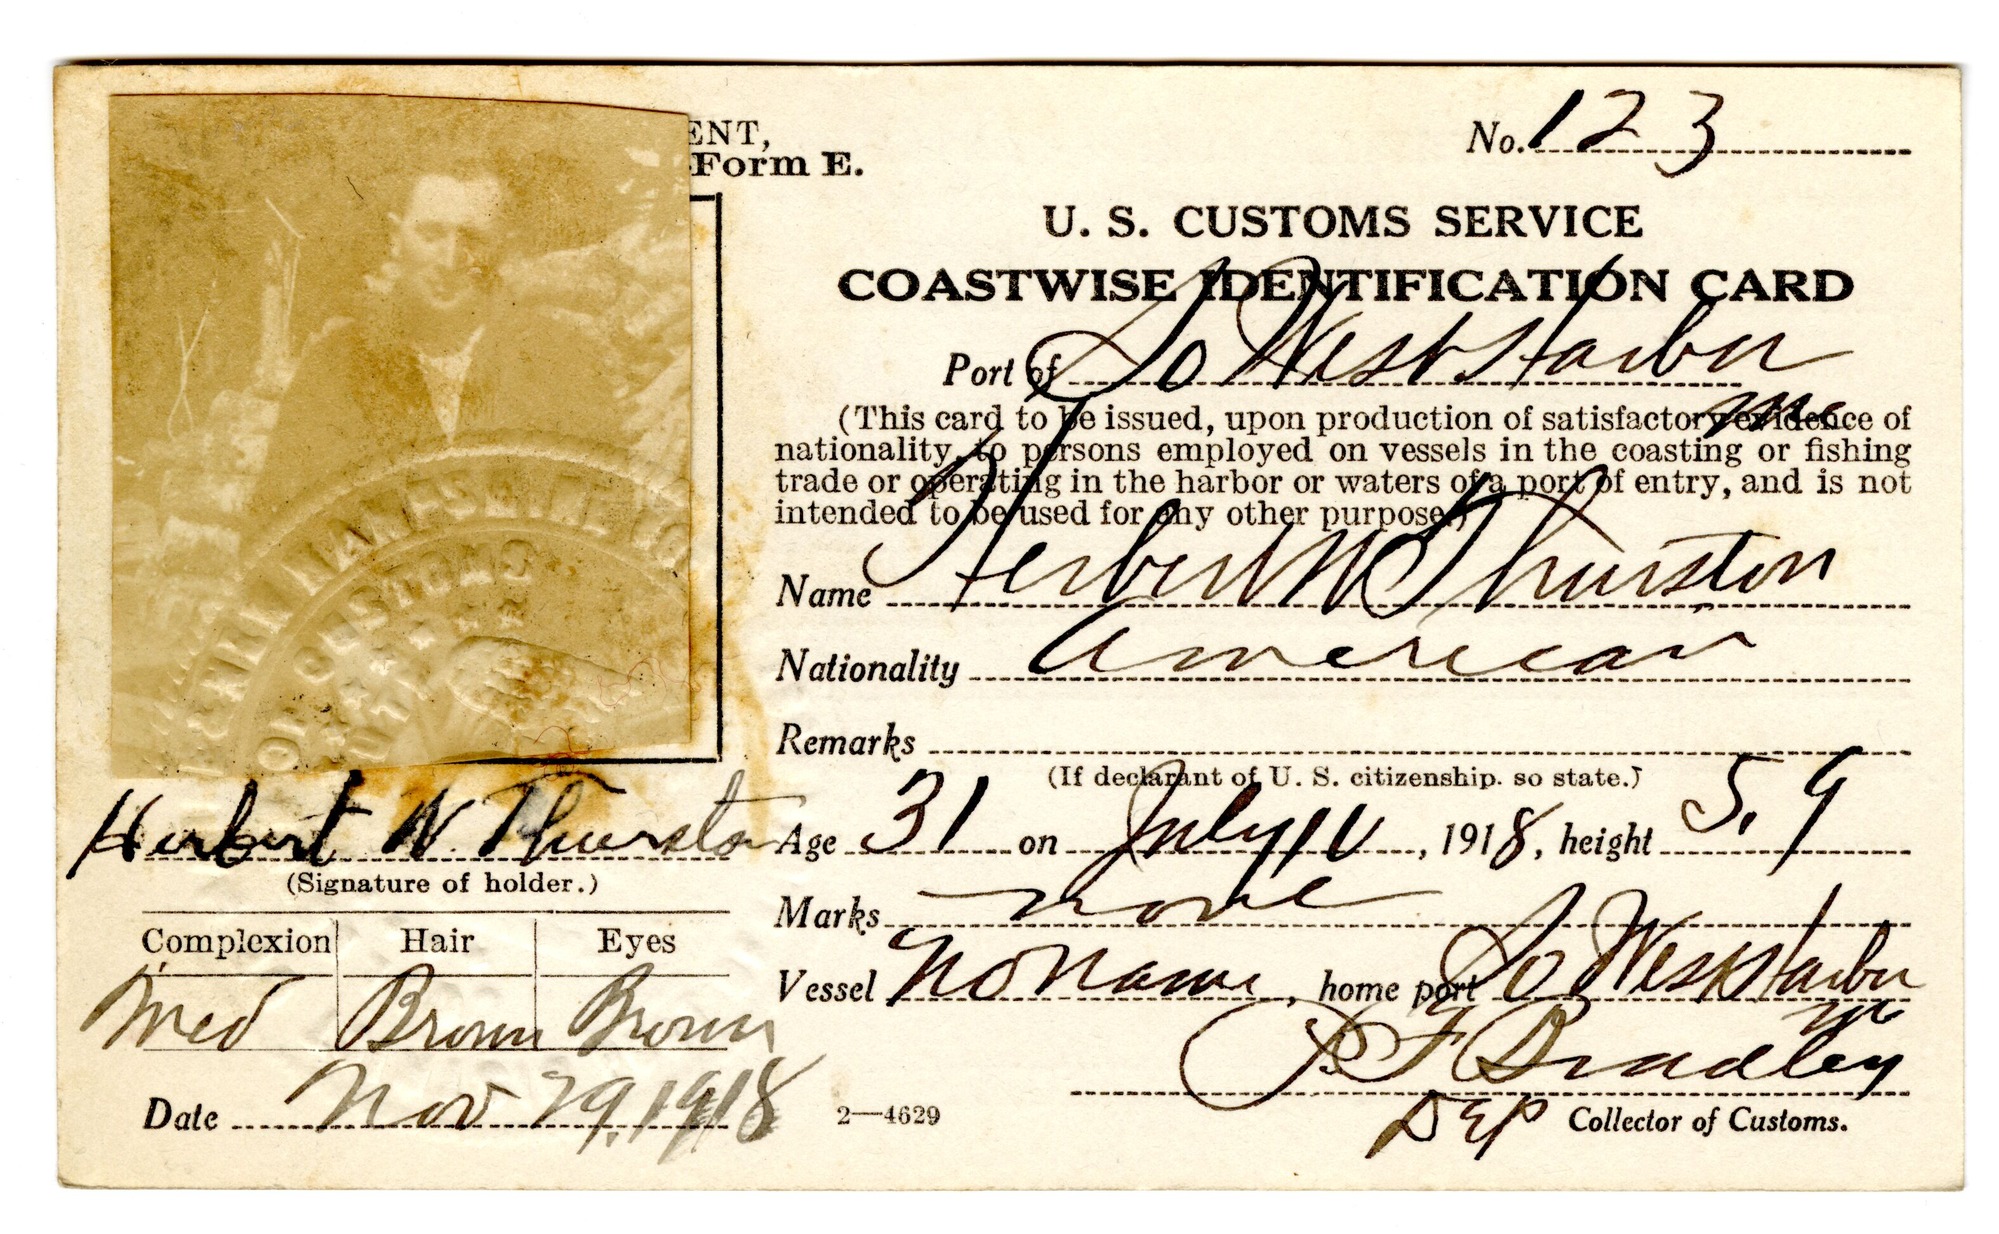 ENT,
Form E.
No. 123
U. S. CUSTOMS SERVICE
COASTWISE IDENTIFICATION CARD
Port of So West Harbor
Me
(This card to be issued, upon production of satisfactory evidence of
nationality, to persons employed on vessels in the coasting or fishing
trade or operating in the harbor or waters of a port of entry, and is not
intended to be used for any other purpose.)
Name Herbert W Thurston
Nationality American
Remarks
(If declarant of U. S. citizenship. so state.)
Age 31 on July, 1918, height 5.9
Marks none
Vessel No Name, home port So West Harbor
Me
P. F Bradley
Dep Collector of Customs.
OF CUSTOMS
Herbert W. Thurston
(Signature of holder.)
Complexion Hair Eyes
Med Brown Brown
Date Nov 29, 1918
2—4629